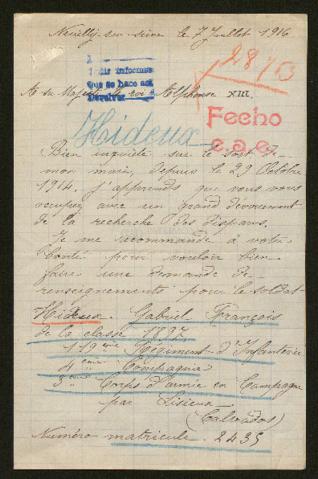 Neuilly-sur-Seine le 7 Juillet 1916
28713
A
Pedir informes
Que se hace act
Devolver
A Sa Majesté le roi Alphonse XIII
Hideux
Fecho
e.a.c.
Bien inquiète sur le sort de
mon mari, depuis le 29 Octobre
1914. J'apprends que vous vous
occupez avec un grand dévouement
de la recherche des disparus.
Je me recommande à votre
bonté pour vouloir bien
faire une demande de
renseignements pour le soldat
Hideux Gabriel François
de la classe 1897
119ème Régiment d'Infanterie
4ème Compagnie
3ème Corps d'armée en Campagne
par Lisieux
(Calvados)
Numéro matricule. 2435